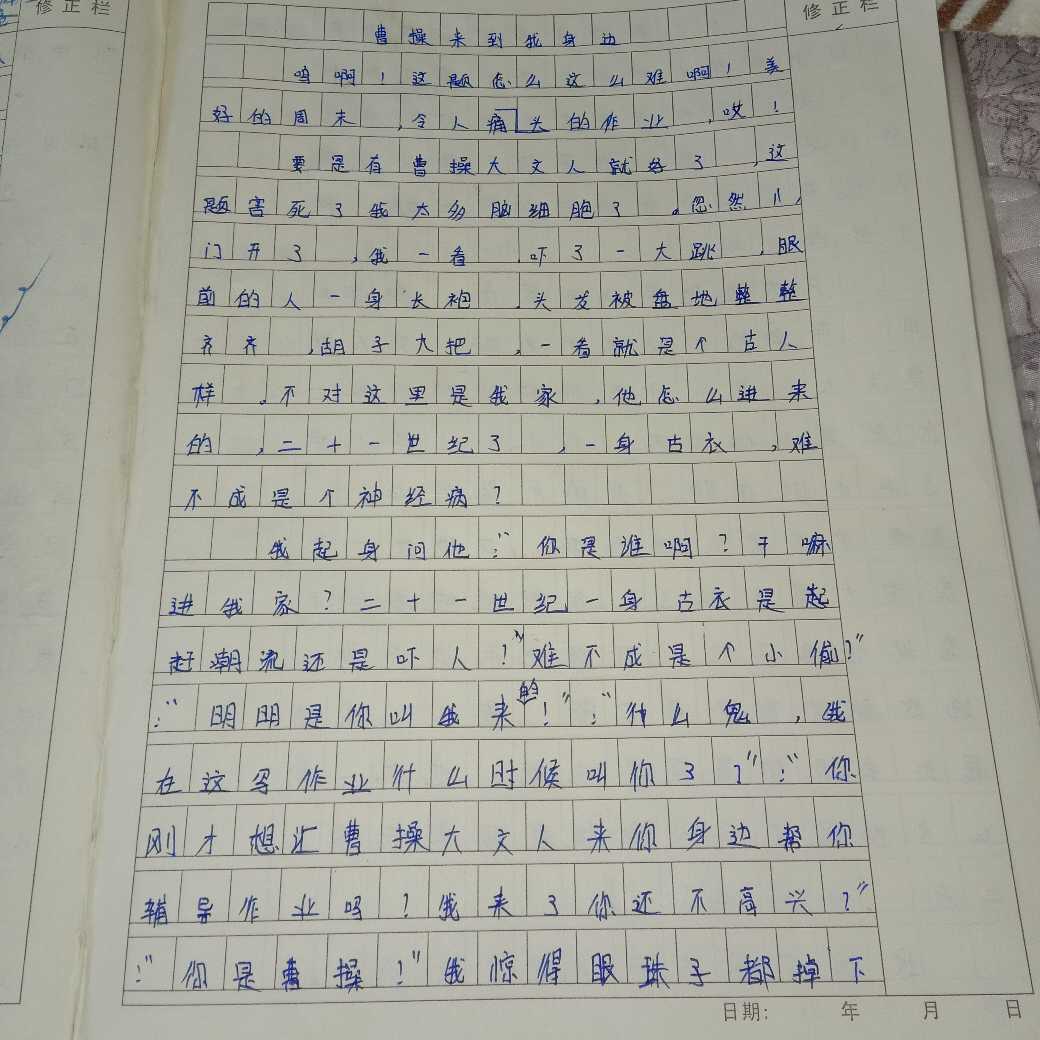 修正栏
修正栏
曹操来到我身边
呜啊！这题怎么这么难啊！美
好的周末，令人痛头的作业，哎！
要是有曹操大文人就好了，这
题害死了我太多脑细胞了。忽然儿，
门开了，我一看，吓了一大跳，眼
前的人一身长袍，头发被盘地整整
齐齐，胡子大把，一看就是个古人
样。不对这里是我家，他怎么进来
的，二十一世纪了，一身古衣，难
不成是个神经病？
我起身问他：“你是谁啊？干嘛
进我家？二十一世纪一身古衣是起
赶潮流还是吓人？”难不成是个小偷？”
：“明明是你叫我来的！”：“什么鬼，我
在这写作业什么时候叫你了？”：“你
刚才想让曹操大文人来你身边帮你
辅导作业吗？我来了你还不高兴？”
：“你是曹操！”我惊得眼珠子都掉下
日期： 年 月 日